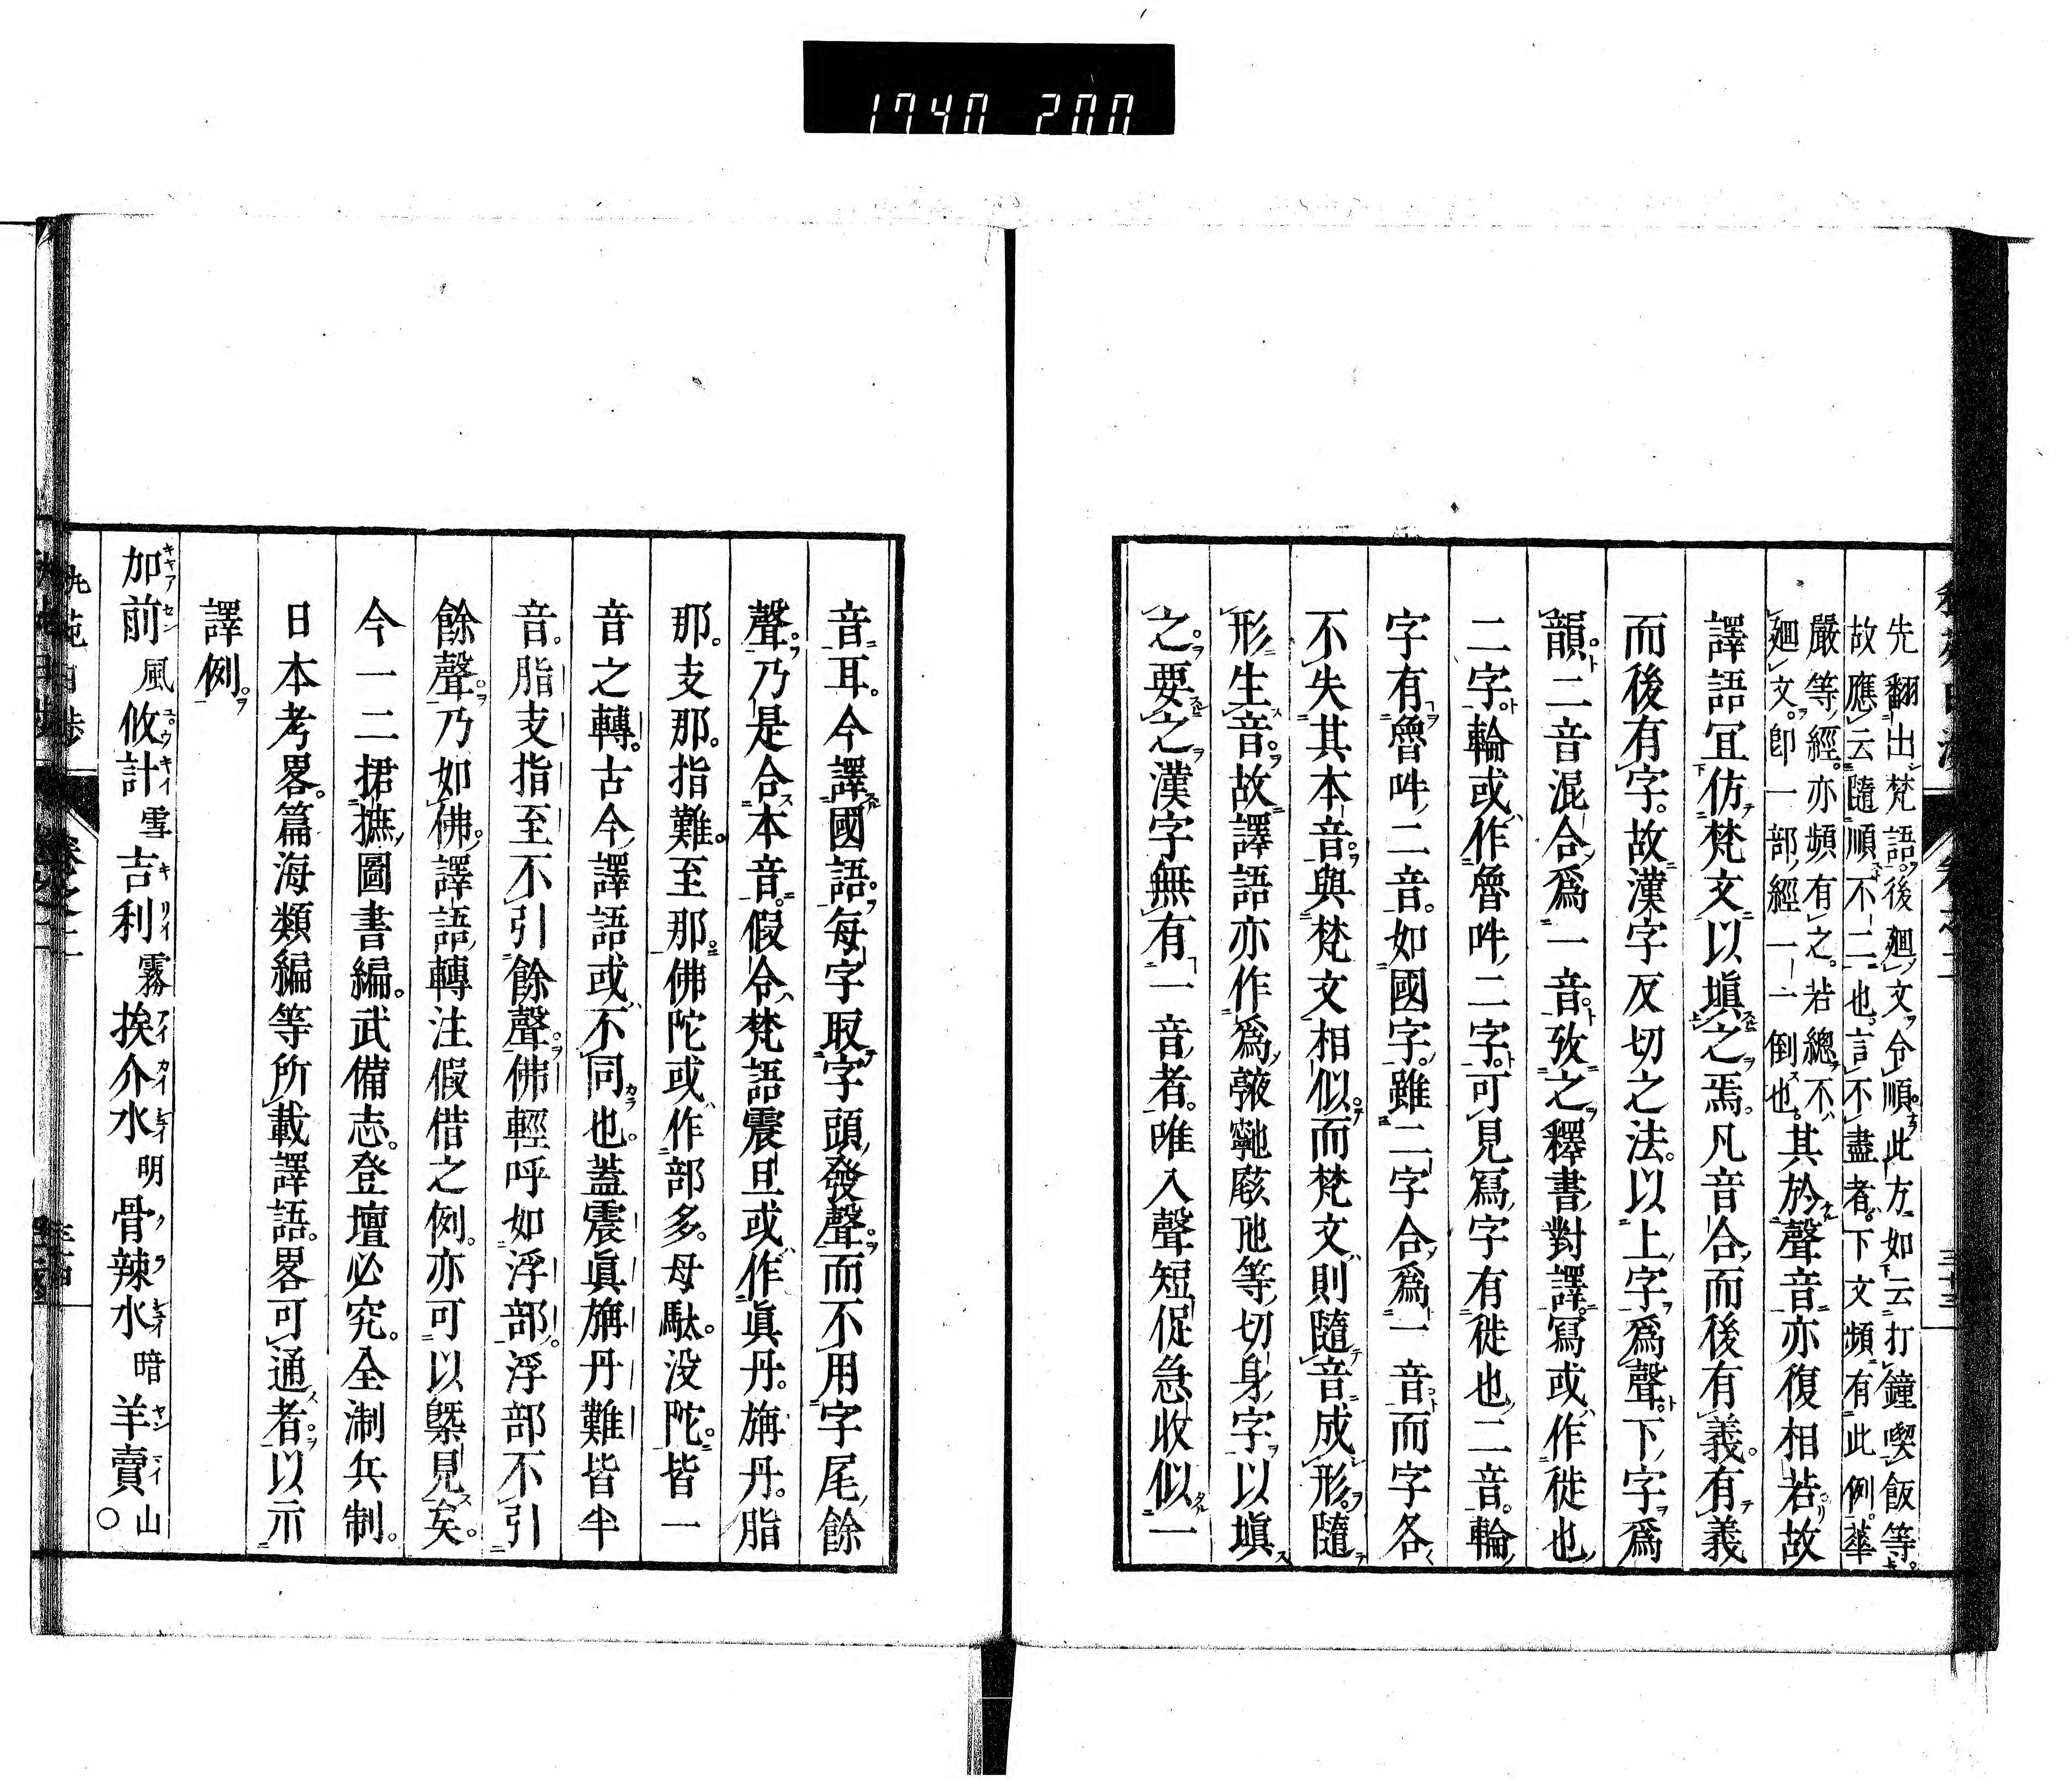 1740 200
先翻出梵語後廻文令順此方如云打鐘喫飯等
故應云隨順不二也言不盡者下文頻有此例華
嚴等經亦頻有之若總不
廻文即一部經一一倒也其於聲音亦復相若故
譯語宜仿梵文以塡之焉凡音合而後有義有義
而後有字故漢字反切之法以上字爲聲下字爲
韻二音混合爲一音攷之釋書對譯寫或作徙也
二字輪或作魯吽二字可見寫字有徙也二音輪
字有魯吽二音如國字雖二字合爲一音而字各
不失其本音與梵文相似而梵文則隨音成形隨
形生音故譯語亦作爲等切身字以塡
之要之漢字無有一音者唯入聲短促急收似一
音耳今譯國語每字取字頭發聲而不用字尾餘
聲乃是合本音假令梵語震旦或作眞丹旃丹脂
那支那指難至那佛陀或作部多母馱没陀皆一
音之轉古今譯語或不同也蓋震眞旃丹難皆半
音脂支指至不引餘聲佛輕呼如浮部浮部不引
餘聲乃如佛譯語轉注假借之例亦可以槩見矣
今一二捃摭圖書編武備志登壇必究全淛兵制
日本考畧篇海類編等所載譯語畧可通者以示
譯例
加前風攸計雪吉利霧挨介水明骨辣水暗羊賣山〇
キヤアセン ユウキイ キリイ アイカイ クラ ヤンマイ